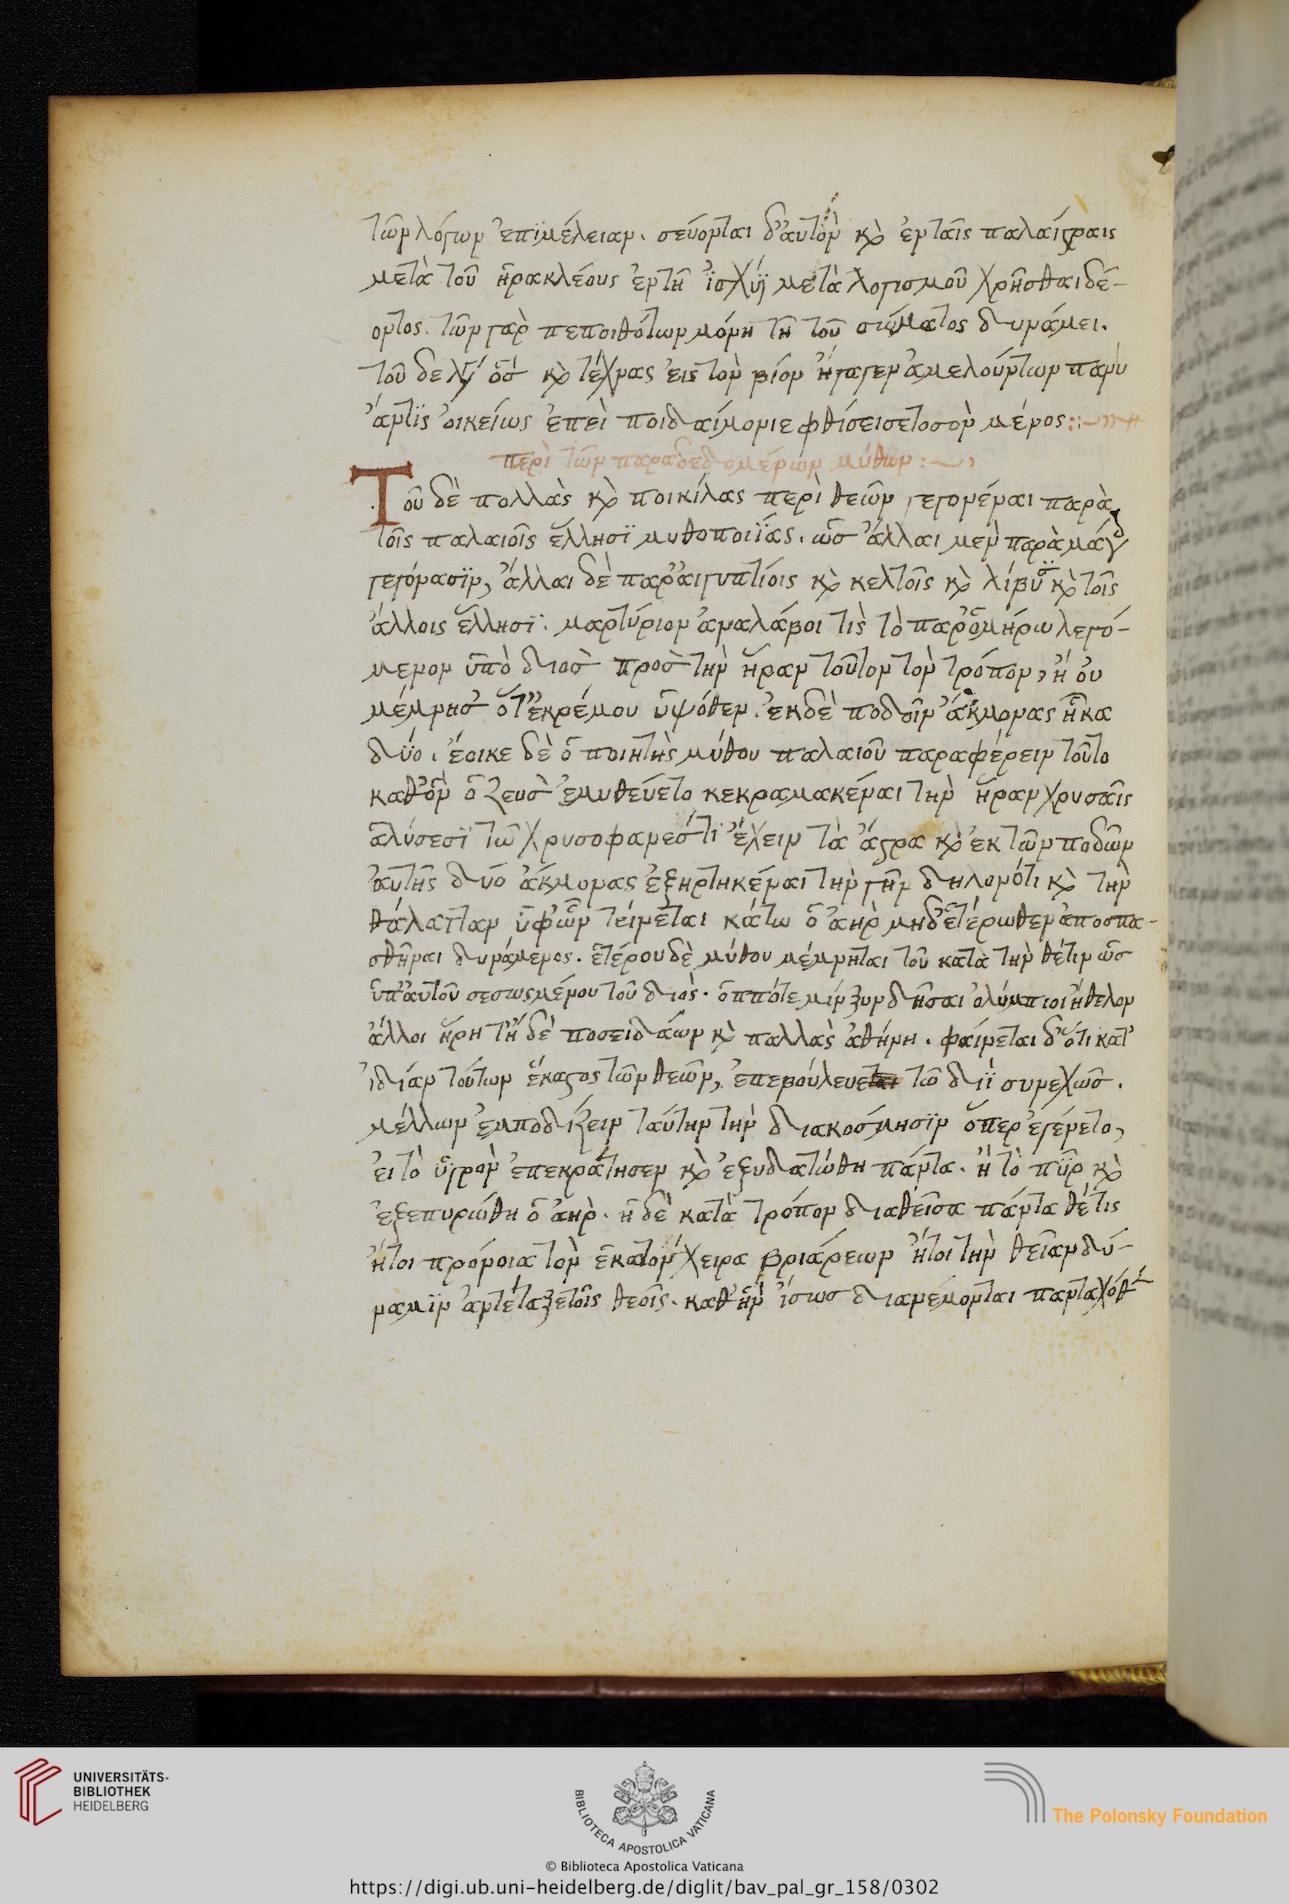 τῶν λόγων ἐπιμέλειαν. σεύονται δ' αὐτὸν κὶ ἐν ταῖς παλαίστραις
μετὰ τοῦ ἡρακλέους ἐν τῆ ἰσχύϊ μετὰ λογισμοῦ χρῆσθαι δέ-
οντος. τῶν γαρ πεποιθότων μόνη τῆ τοῦ σώματος δυνάμει.
τοῦ δε κὶ τέχνας εἰς τὸν βίον ἤγαγεν ἀμελούντων πάνυ
ἄν τις οἰκείως ἐπεὶ ποι δαίμονιε φθίσει σε τὸ σὸν μένος:
περὶ τῶν παραδεδομένων μύθων :
Τοῦ δὲ πολλὰς κὶ ποικίλας περὶ θεῶν γεγονέναι παρὰ
τοῖς παλαιοῖς ἕλλησϊ μυθοποιΐας. ὡς ἄλλαι μεν παρὰ μάγ
γεγόνασϊν, ἄλλαι δὲ παρ' αἰγυπτίοις κὶ κελτοῖς κὶ λίβυσϊ κὶ τοῖς
ἄλλοις ἕλλησϊ. μαρτύριον ἀναλάβοι τὶς τὸ παρ' ὁμήρω λεγό-
μενον ὑπὸ διοσ προσ τὴν ἥραν τοῦτον τὸν τρόπον, ἢ οὐ
μέμνησ ὅτ' ἐκρέμου ὑψόθεν. ἐκ δὲ ποδοῖν ἄκμονας ἧκα
δύο. ἔοικε δὲ ὁ ποιητὴς μύθου παλαιοῦ παραφέρειν τοῦτο
καθ' ὃν ὁ ζευσ ἐμυθεύετο κεκραμακέναι τὴν ἥραν χρυσαῖς
ἁλύσεσϊ τῶ χρυσοφανές τϊ ἔχειν τὰ ἄστρα κὶ ἐκ τῶν ποδῶν
αὐτῆς δύο ἄκμονας ἐξηρτηκέναι τὴν γῆν δηλονότι κὶ τὴν
θάλατταν ὑφ' ὧν τείνεται κάτω ὁ ἀὴρ μηδ' ἑτέρωθεν ἀποσπα-
σθῆναι δυνάμενος. ἑτέρου δὲ μύθου μέμνηται τοῦ κατὰ τὴν θέτιν ὡσ
ὑπ' αὐτοῦ σεσωσμένου τοῦ διός. ὁππότε μίν ξυνδῆσαι ὀλύμπιοι ἤθελον
ἄλλοι ἥρη τ' ἠδὲ ποσειδάων κὶ παλλὰς ἀθήνη. φαίνεται δ' ὅτι κατ'
ἰδίαν τούτων ἕκαστος τῶν θεῶν, ἐπεβούλευε τῶ διῒ συνεχῶσ.
μέλλων ἐμποδίζειν ταύτην τὴν διακοσμησϊν ὅπερ ἐγένετο,
εἰ τὸ ὑγρὸν ἐπεκράτησεν κὶ ἐξυδατώθη πάντα. ἢ τὸ πῦρ κὶ
ἐξεπυρώθη ὁ ἀήρ. ἡ δὲ κατὰ τρόπον διαθεῖσα πάντα θέτις
ἤτοι πρόνοια τὸν ἑκατόγχειρα βριάρεων ἤτοι τὴν θεῖαν δύ-
ναμϊν ἀντέταξε τοῖς θεοῖς. καθ' ἣν ἴσωσ διανέμονται πανταχόθ
UNIVERSITÄTS-
BIBLIOTHEK
HEIDELBERG
BIBLIOTECA APOSTOLICA VATICANA
The Polonsky Foundation
© Biblioteca Apostolica Vaticana
https://digi.ub.uni-heidelberg.de/diglit/bav_pal_gr_158/0302